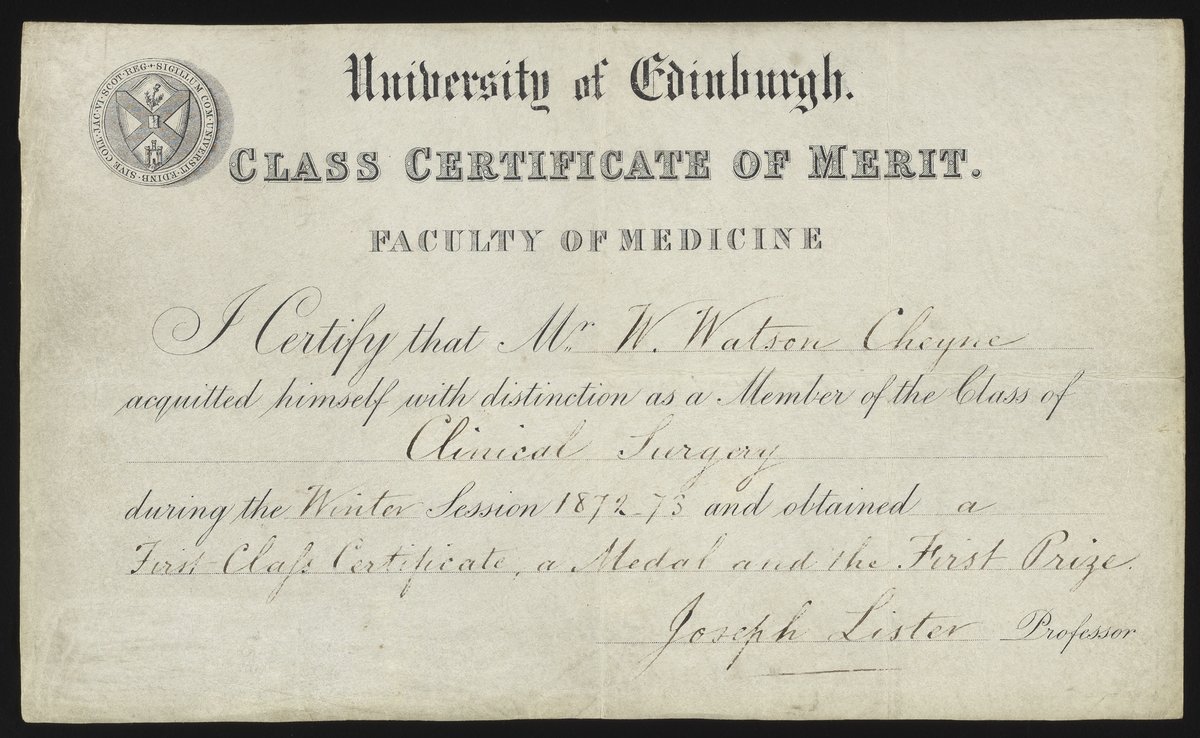 SIGILLUM·COM·UNIVERSIT·EDINB·SIVE COLL·JAC·VI·SCOT·REG·
University of Edinburgh.
CLASS CERTIFICATE OF MERIT.
FACULTY OF MEDICINE
I Certify that Mr. W. Watson Cheyne
acquitted himself with distinction as a Member of the Class of
Clinical Surgery
during the Winter Session 1872-73 and obtained a
First-Claſs Certificate, a Medal and the First Prize.
Joseph Lister Professor